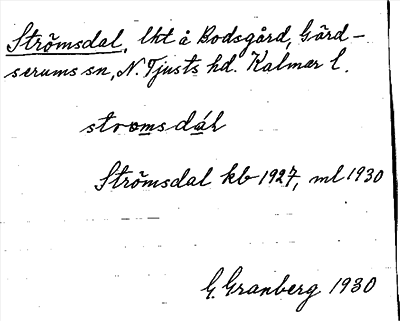 Strömsdal, lht å Bodsgård, Gärd-
serums sn, N. Tjusts hd. Kalmar l.
stromsdál
Strömsdal kb 1927, ml 1930
G. Granberg 1930